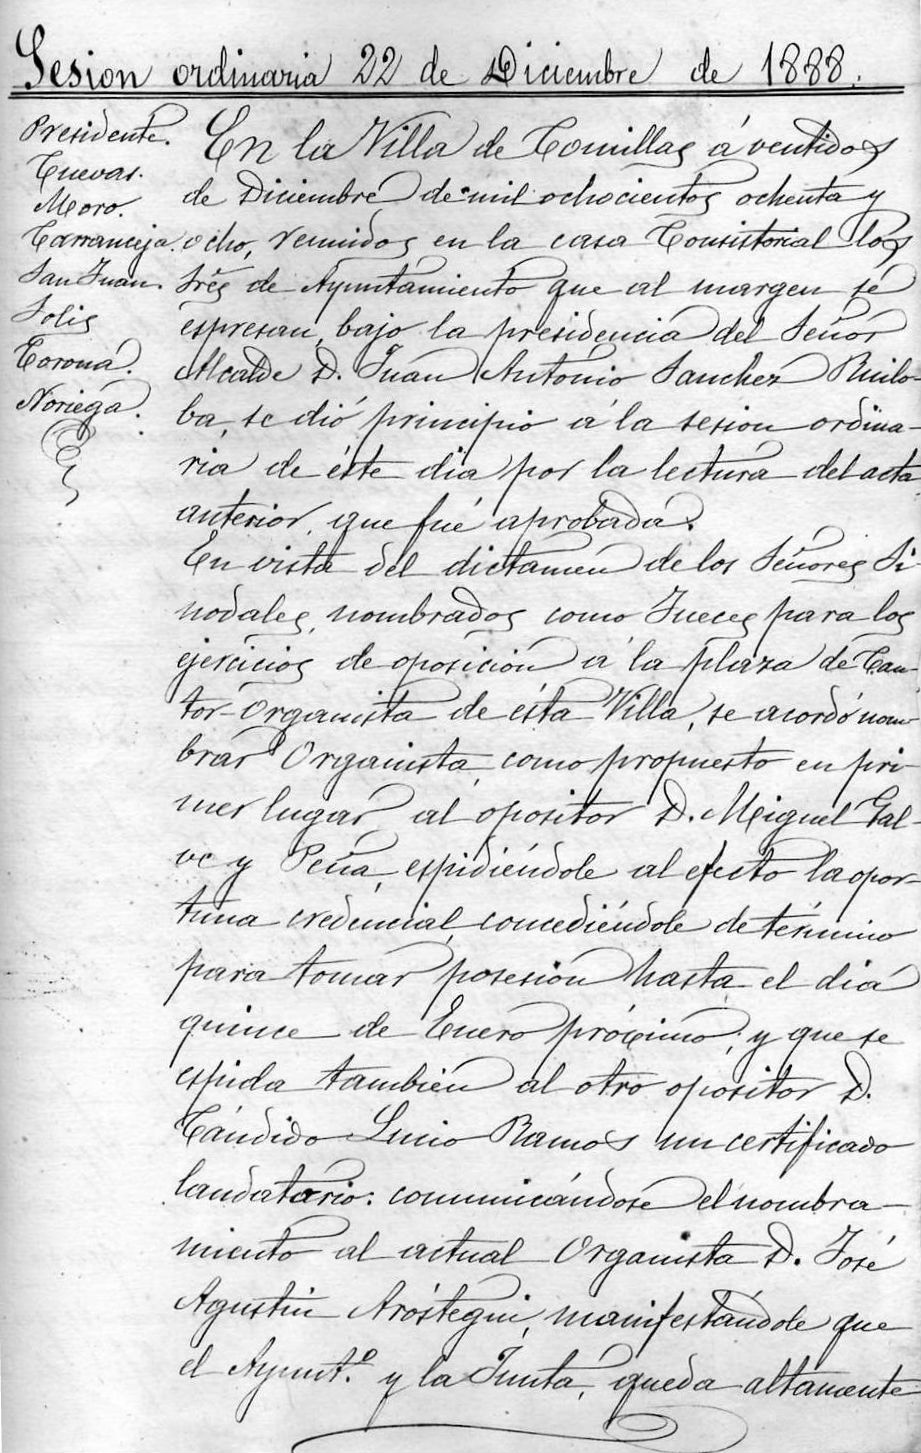 Sesion ordinaria 22 de Diciembre de 1888.
Presidente.
Cuevas.
Moro.
Carranceja.
San Juan.
Solis
Corona.
Noriega.
En la Villa de Comillas á ventidos
de Diciembre de mil ochocientos ochenta y
ocho, reunidos en la casa Consistorial los
Sres de Ayuntamiento que al margen se
espresan, bajo la presidencia del Señor
Alcalde D. Juan Antonio Sanchez Ruilo-
ba, se dió principio á la sesion ordina-
ria de éste dia por la lectura del acta
anterior, que fué aprobada.
En vista del dictamen de los Señores Si-
nodales, nombrados como Jueces para los
ejercicios de oposición á la plaza de Can-
tor-Organista de ésta Villa, se acordó nom-
brar Organista, como propuesto en pri-
mer lugar al opositor D. Miguel Gal-
ve y Peña, espidiéndole al efecto la opor-
tuna credencial, concediéndole de término
para tomar posesión hasta el dia
quince de Enero próximo; y que se
espida tambien al otro opositor D.
Cándido Lucio Ramos un certificado
laudatorio: comunicándose el nombra-
miento al actual Organista D. José
Agustin Aróstegui, manifestándole que
el Ayunt.º y la Junta, queda altamente